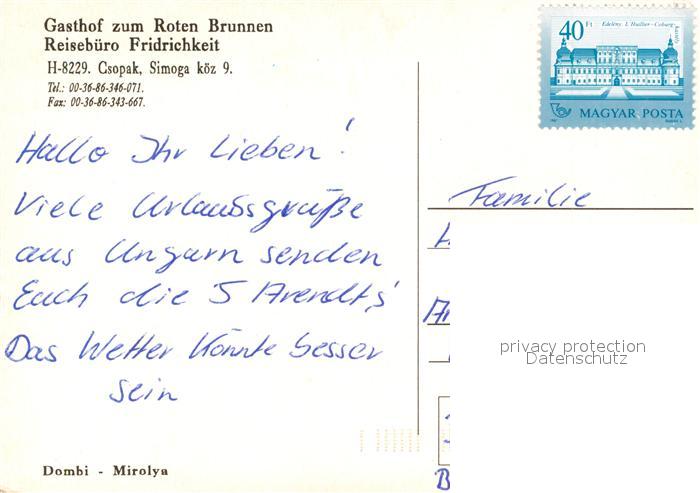 Gasthof zum Roten Brunnen
Reisebüro Fridrichkeit
H-8229. Csopak, Simoga köz 9.
Tel.: 00-36-86-346-071.
Fax: 00-36-86-343-667.
40 Ft
Edelény. L'Huillier-Coburg-kastély
MAGYAR POSTA
Hallo Ihr Lieben!
Viele Urlaubsgrüße
aus Ungarn senden
Euch die 5 Arendt's!
Das Wetter könnte besser
sein
Familie
privacy protection
Datenschutz
Dombi - Mirolya